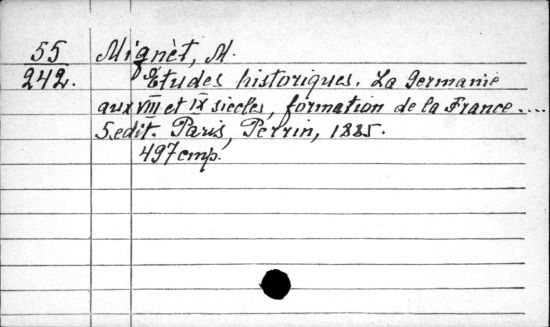 55 Mignèt, M.
242. Etudes historiques. La Germanie
aux VIII et IX siecles, formation de la France....
5. edit. Paris, Perrin, 1885.
497 стр.